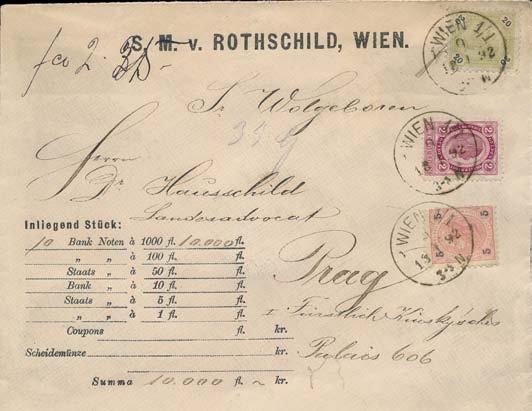 S. M. v. ROTHSCHILD, WIEN.
fco 2.
Sr Wolgeboren
Herrn
Dr Hausschild
Landesadvocat
Prag
Fürstlich Kinsky'sches
Palais 606
Inliegend Stück:
10 Bank Noten à 1000 fl. 10.000 fl.
„ „ à 100 fl. fl.
Staats „ à 50 fl. fl.
Bank „ à 10 fl. fl.
Staats „ à 5 fl. fl.
„ „ à 1 fl. fl.
Coupons fl. kr.
Scheidemünze fl. kr.
Summa 10.000 fl. ~ kr.
20
20
WIEN 1/1
92
2 2
WIEN 1/1
92
3-3 N
5 5
5
WIEN 1/1
13 92
3-3 N